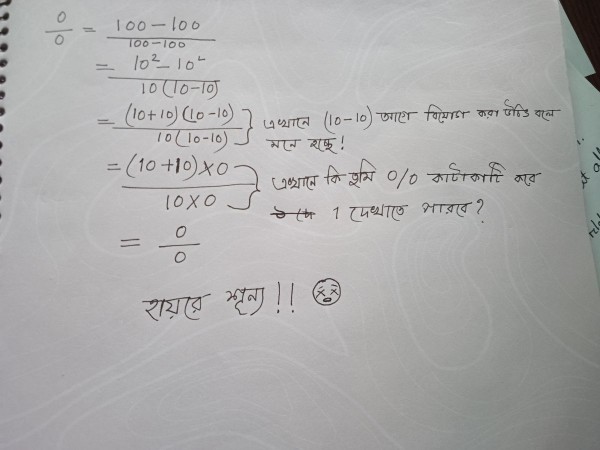 0/0 = 100-100/100-100
= 10²-10²/10(10-10)
= (10+10)(10-10)/10(10-10) } এখানে (10-10) আগে বিয়োগ করা উচিত বলে
মনে হচ্ছে!
= (10+10)×0/10×0 } এখানে কি তুমি 0/0 কাটাকাটি করে
1 দেখাতে পারবে?
= 0/0
হায়রে শূন্য!!